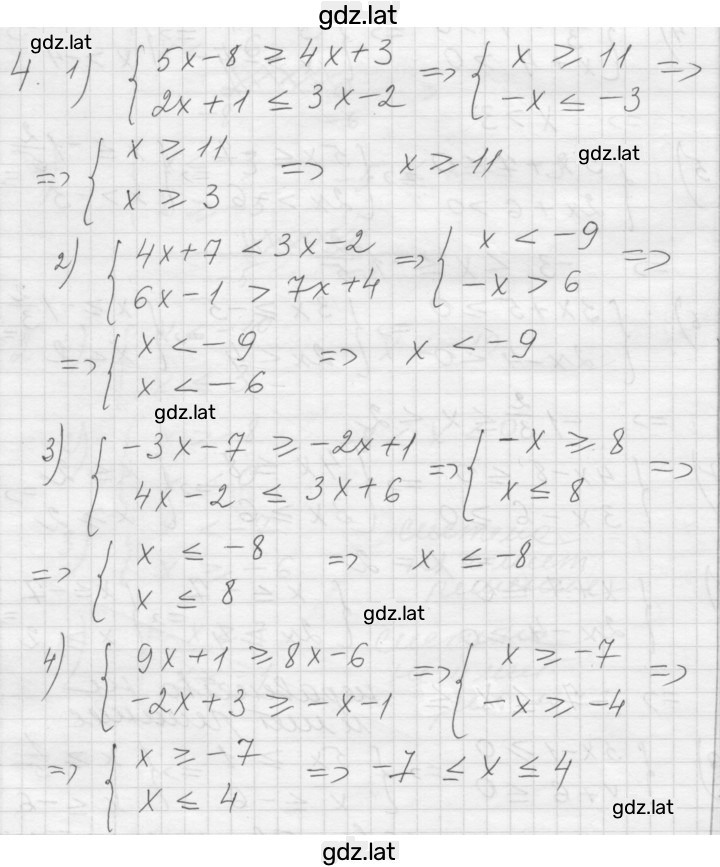 gdz.lat
gdz.lat
4. 1) { 5x-8 ≥ 4x+3 => { x ≥ 11 =>
2x+1 ≤ 3x-2 -x ≤ -3
=> { x ≥ 11 => x ≥ 11
x ≥ 3
gdz.lat
2) { 4x+7 < 3x-2 => { x < -9 =>
6x-1 > 7x+4 -x > 6
=> { x < -9 => x < -9
x < -6
gdz.lat
3) { -3x-7 ≥ -2x+1 => { -x ≥ 8 =>
4x-2 ≤ 3x+6 x ≤ 8
=> { x ≤ -8 => x ≤ -8
x ≤ 8
gdz.lat
4) { 9x+1 ≥ 8x-6 => { x ≥ -7 =>
-2x+3 ≥ -x-1 -x ≥ -4
=> { x ≥ -7 => -7 ≤ x ≤ 4
x ≤ 4
gdz.lat
gdz.lat